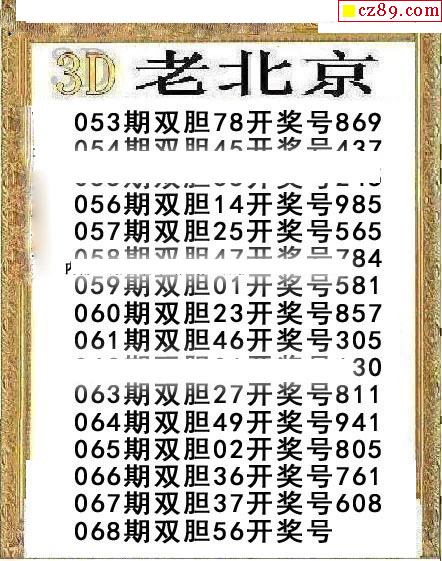 cz89.com
3D 老北京
053期双胆78开奖号869
054期双胆45开奖号437
056期双胆14开奖号985
057期双胆25开奖号565
058期双胆47开奖号784
059期双胆01开奖号581
060期双胆23开奖号857
061期双胆46开奖号305
30
063期双胆27开奖号811
064期双胆49开奖号941
065期双胆02开奖号805
066期双胆36开奖号761
067期双胆37开奖号608
068期双胆56开奖号